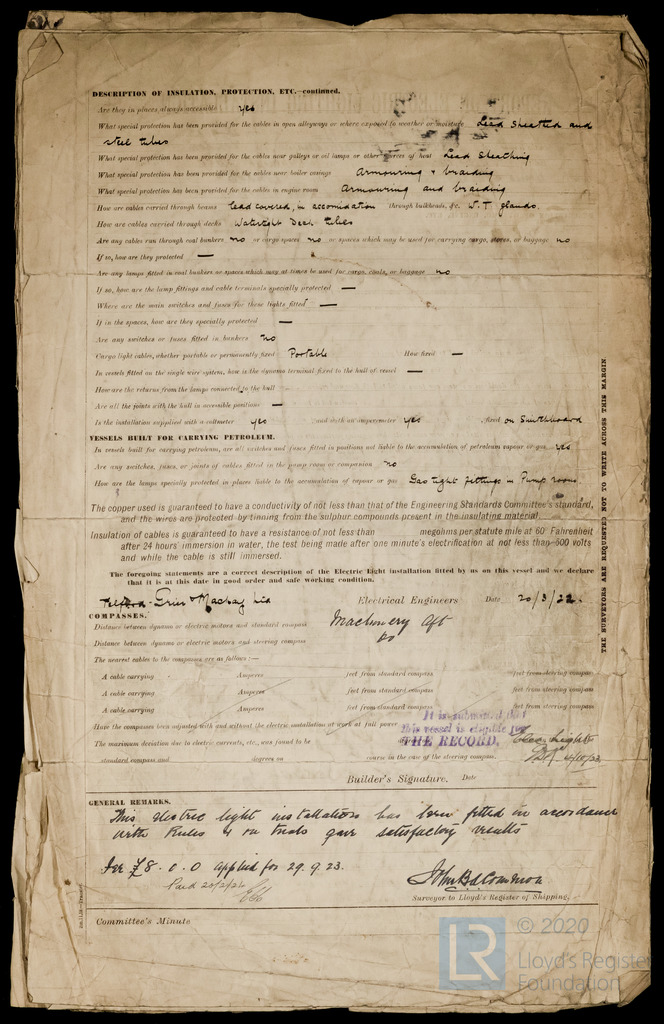 DESCRIPTION OF INSULATION, PROTECTION, ETC.—continued.
Are they in places always accessible yes
What special protection has been provided for the cables in open alleyways or where exposed to weather or moisture Lead sheathed and
steel tubes
What special protection has been provided for the cables near galleys or oil lamps or other sources of heat Lead Sheathing
What special protection has been provided for the cables near boiler casings Armouring & braiding
What special protection has been provided for the cables in engine room Armouring and braiding
How are cables carried through beams lead covered, in accomidation through bulkheads, &c. W.T glands.
How are cables carried through decks Watertight Deck tubes
Are any cables run through coal bunkers no or cargo spaces no or spaces which may be used for carrying cargo, stores, or baggage no
If so, how are they protected —
Are any lamps fitted in coal bunkers or spaces which may at times be used for cargo, coals, or baggage no
If so, how are the lamp fittings and cable terminals specially protected —
Where are the main switches and fuses for these lights fitted —
If in the spaces, how are they specially protected —
Are any switches or fuses fitted in bunkers no
Cargo light cables, whether portable or permanently fixed Portable How fixed —
In vessels fitted on the single wire system, how is the dynamo terminal fixed to the hull of vessel —
How are the returns from the lamps connected to the hull
Are all the joints with the hull in accessible positions —
Is the installation supplied with a voltmeter yes and with an amperemeter yes fixed on Switchboard
VESSELS BUILT FOR CARRYING PETROLEUM.
In vessels built for carrying petroleum, are all switches and fuses fitted in positions not liable to the accumulation of petroleum vapour or gas yes
Are any switches, fuses, or joints of cables fitted in the pump room or companion no
How are the lamps specially protected in places liable to the accumulation of vapour or gas Gas tight fittings in Pump room
The copper used is guaranteed to have a conductivity of not less than that of the Engineering Standards Committee's standard,
and the wires are protected by tinning from the sulphur compounds present in the insulating material.
Insulation of cables is guaranteed to have a resistance of not less than megohms per statute mile at 60° Fahrenheit
after 24 hours' immersion in water, the test being made after one minute's electrification at not less than 500 volts
and while the cable is still immersed.
The foregoing statements are a correct description of the Electric Light installation fitted by us on this vessel and we declare
that it is at this date in good order and safe working condition.
Telford Grier & Mackay Ltd Electrical Engineers Date 20/3/22.
COMPASSES.
Distance between dynamo or electric motors and standard compass Machinery Aft
Distance between dynamo or electric motors and steering compass do
The nearest cables to the compasses are as follows:—
A cable carrying Amperes feet from standard compass feet from steering compass
A cable carrying Amperes feet from standard compass feet from steering compass
A cable carrying Amperes feet from standard compass feet from steering compass
Have the compasses been adjusted with and without the electric installation at work at full power
It is submitted that
this vessel is eligible for
THE RECORD. Elec. Light
The maximum deviation due to electric currents, etc., was found to be
standard compass and degrees on course in the case of the steering compass.
Builder's Signature. Date
GENERAL REMARKS.
This electric light installation has been fitted in accordance
with Rules & on trials gave satisfactory results
Fee £8.0.0 applied for 29.9.23.
Surveyor to Lloyd's Register of Shipping.
Committee's Minute
THE SURVEYORS ARE REQUESTED NOT TO WRITE ACROSS THIS MARGIN.
LR
© 2020
Lloyd's Register
Foundation